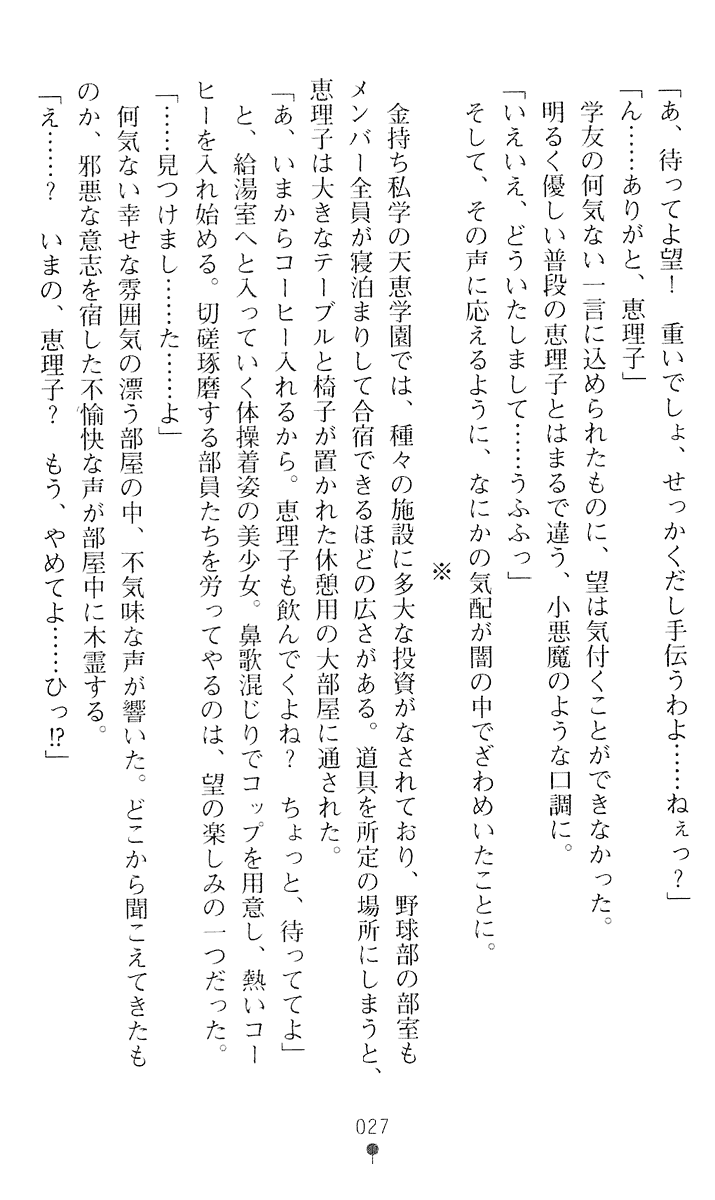 「あ、待ってよ望！　重いでしょ、せっかくだし手伝うわよ……ねぇっ？」
「ん……ありがと、恵理子」
　学友の何気ない一言に込められたものに、望は気付くことができなかった。
　明るく優しい普段の恵理子とはまるで違う、小悪魔のような口調に。
「いえいえ、どういたしまして……うふふっ」
　そして、その声に応えるように、なにかの気配が闇の中でざわめいたことに。
※
　金持ち私学の天恵学園では、種々の施設に多大な投資がなされており、野球部の部室も
メンバー全員が寝泊まりして合宿できるほどの広さがある。道具を所定の場所にしまうと、
恵理子は大きなテーブルと椅子が置かれた休憩用の大部屋に通された。
「あ、いまからコーヒー入れるから。恵理子も飲んでくよね？　ちょっと、待っててよ」
　と、給湯室へと入っていく体操着姿の美少女。鼻歌混じりでコップを用意し、熱いコー
ヒーを入れ始める。切磋琢磨する部員たちを労ってやるのは、望の楽しみの一つだった。
「……見つけまし……た……よ」
　何気ない幸せな雰囲気の漂う部屋の中、不気味な声が響いた。どこから聞こえてきたも
のか、邪悪な意志を宿した不愉快な声が部屋中に木霊する。
「え……？　いまの、恵理子？　もう、やめてよ……ひっ!?」
027